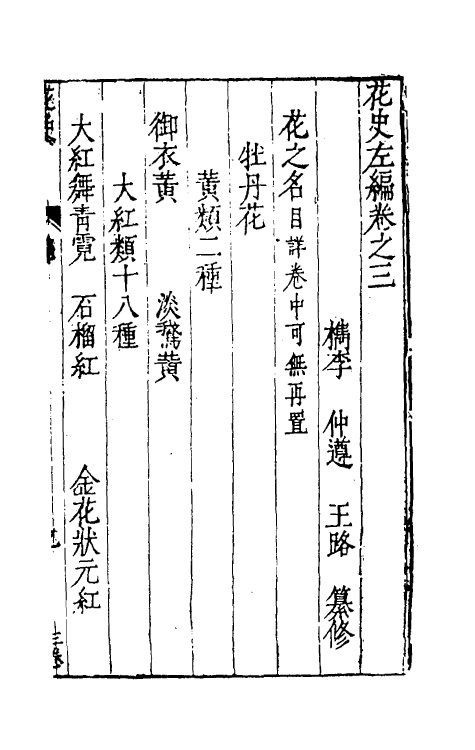 花史左編卷之三
檇李 仲遵 王路 纂修
花之名目詳卷中可無再置
牡丹花
黃類二種
御衣黃 淡鵞黃
大紅類十八種
大紅舞青霓 石榴紅 金花狀元紅